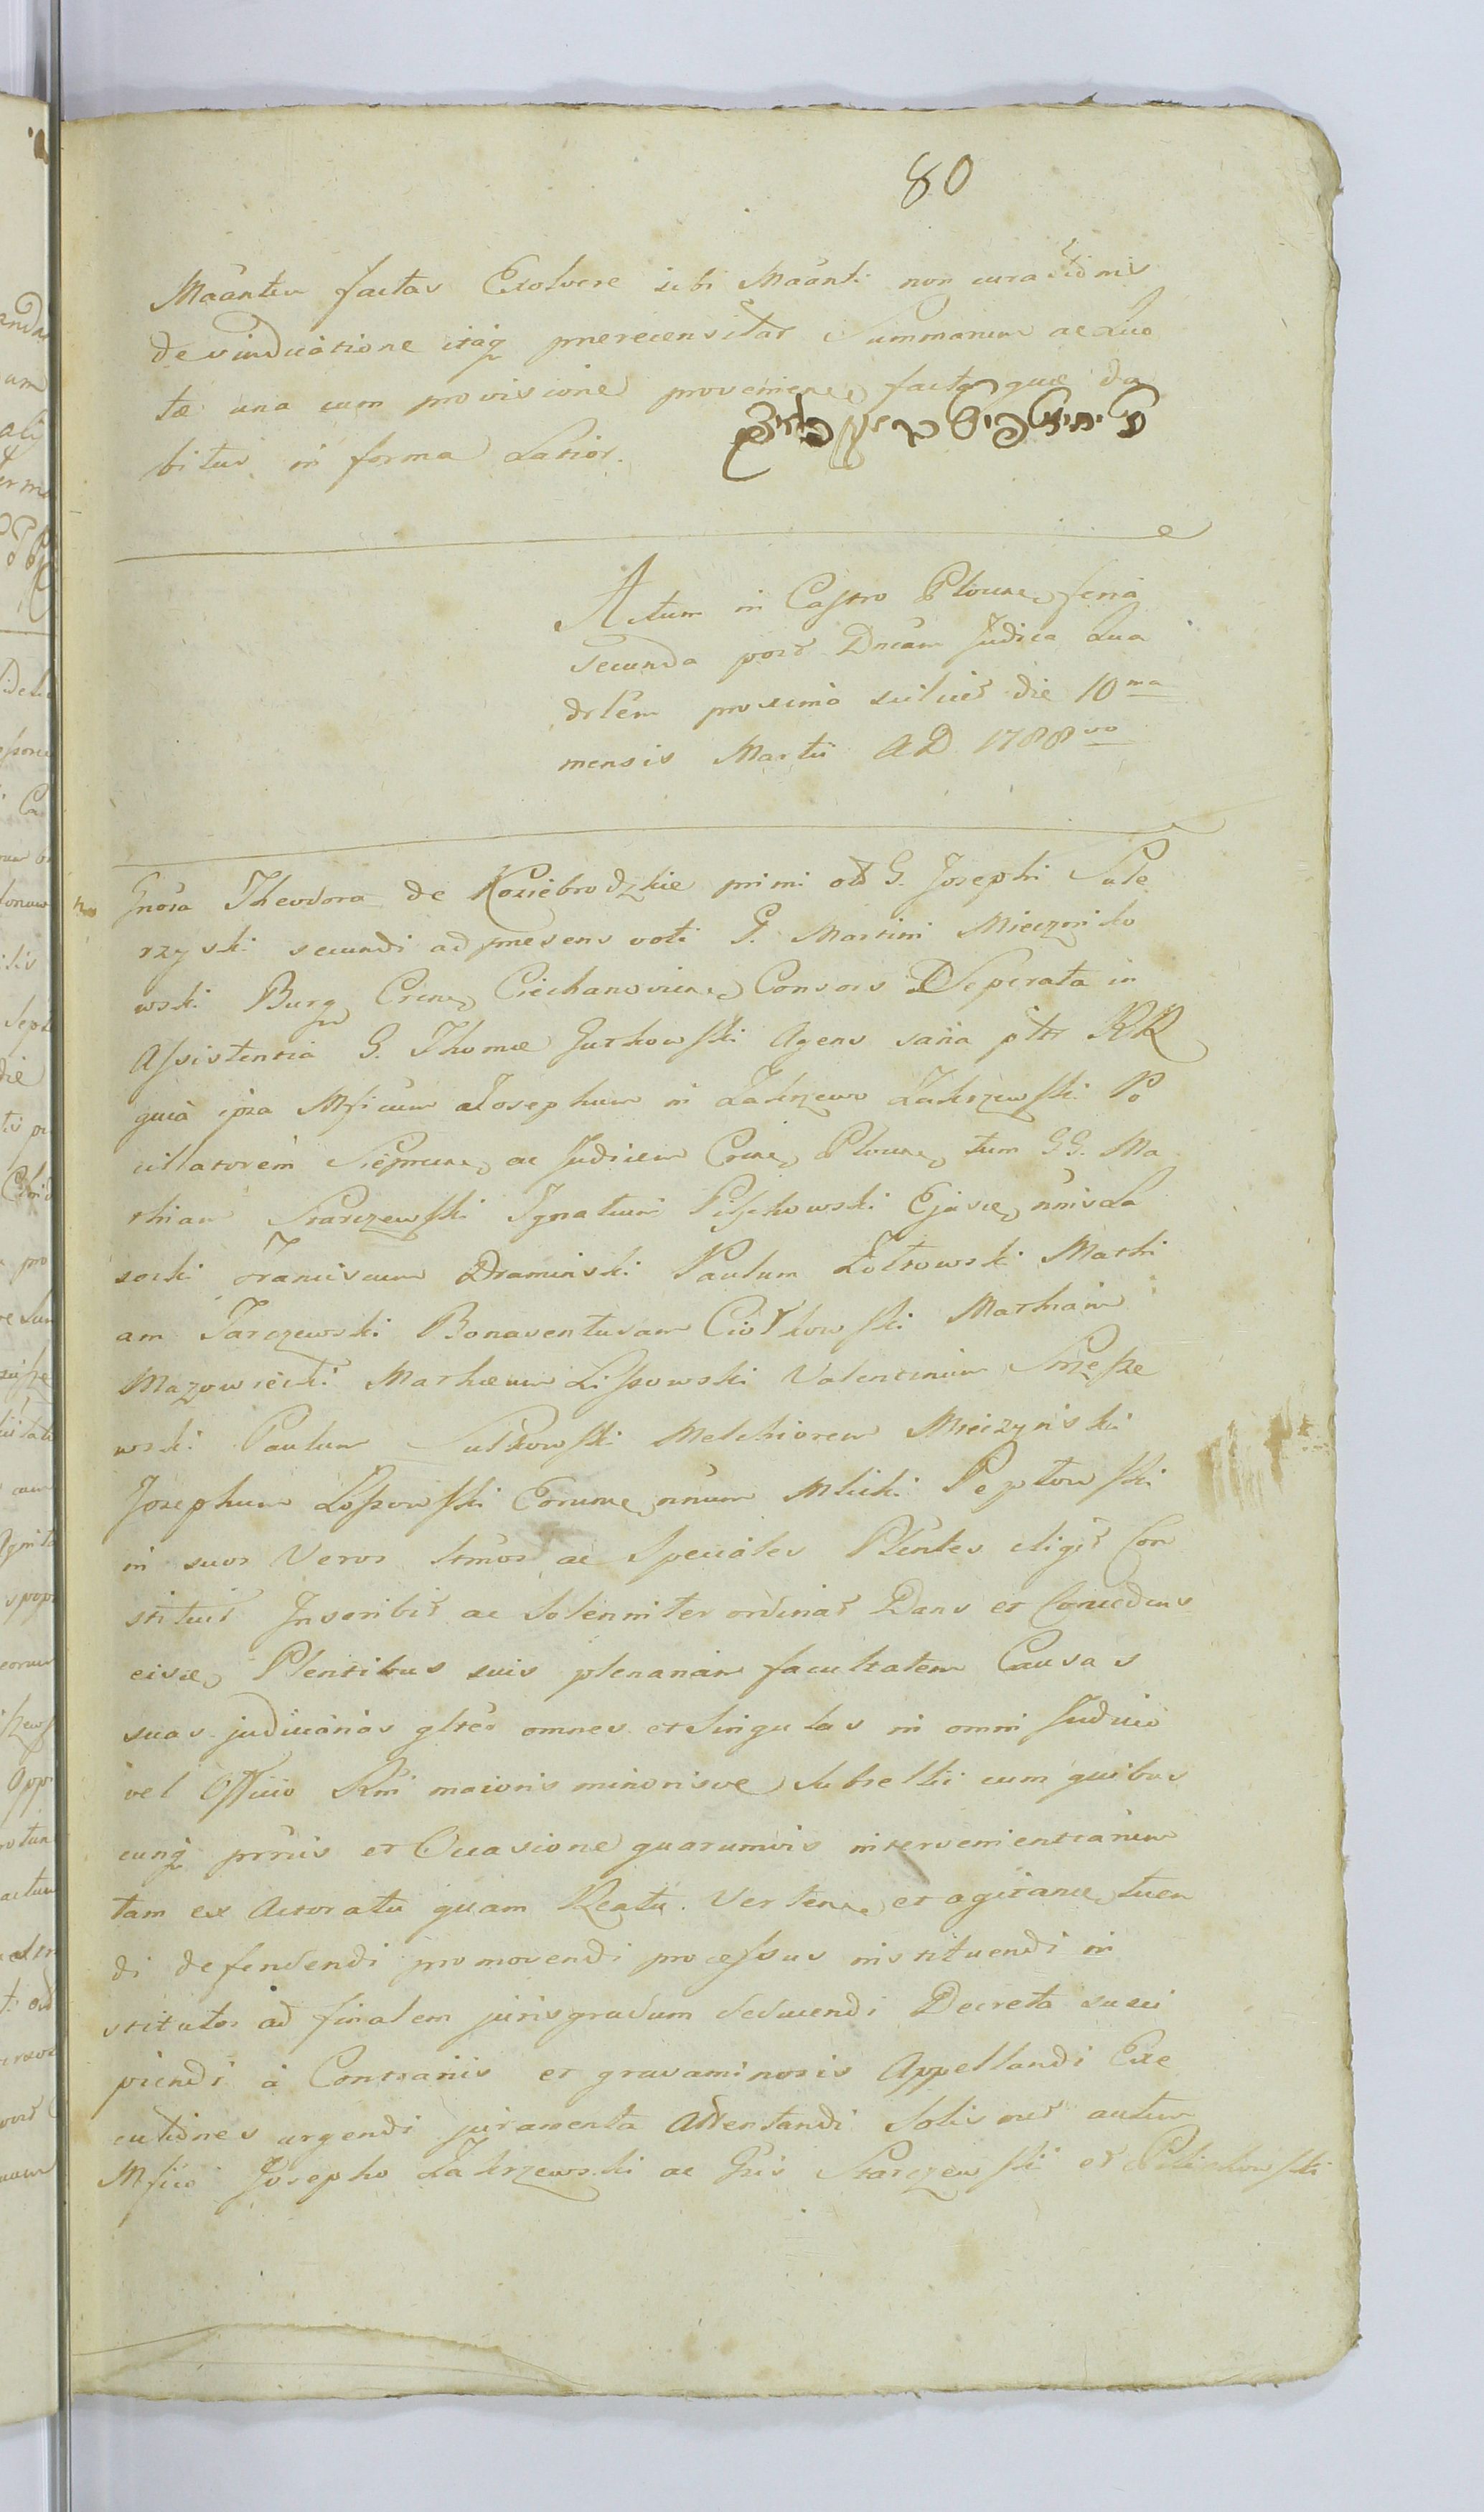 80
Maantem factas Exolvere sibi Maanti non curationis
de vindicatione itaq praerecensitar Summarum ac Quo
tae una cum provisione provenien facta quae da
bitur in forma Latior.
Actum in Castro Plocen feria
secunda post Dncam Judica Qua
drlem proxima scilicet die 10ma
mensis Martii AD 1788vo
Gnosa Theodora de Koziebrodzkie primi olt G. Josephi Sule
rzyski secundi ad praesens voti G. Martini Mieczniko
wski Burg Crene Ciechanovien Consors Seperata in
Assistentia G. Thomae Gurkowski Agens sana pttr RR
quia ipsa Mficum Josephum in Zakrzewo Zakrzewski Po
cillatorem Sieprcen ac Judicem Crene Plocen tum GG. Ma
thiam Starczewski Ignatium Ejusce nnis La
socki Franciscum Draminski Paulum Zoltowski Mathi
am Jarczewski Bonaventuram Ciołkowski Mathiam
Mazowiecki Mathaeum Lissowski Valentinum
wski Paulum Sutkowski Melchiorem Mieczynski
Josephum Lossowski Eorumce nnum Mlicki Peptowski
in suos Veros ltmos ac Speciales Plentes eligit Con
stituit Inscribit ac Solenniter ordinat Dans et Concedens
eisce Plentibus suis plenariam facultatem Causas
suas judiciarias gltes omnes et Singulas in omni Judicio
vel Officio Rni maioris minorisve Subsellii cum quibus
cunq prnis et Occasione quarumvis intervenientiarum
tam ex Actoratu quam Reatu. Verten et agitan tuen
di defendendi promovendi processus instituendi in
stitutos ad finalem juris gradum deducendi Decreta susci
piendi à Contrariis et gravaminosis Appellandi Exe
cutiones urgendi juramenta Attentandi Solis met autem
Mfico Josepho Zakrzewski ac Gsis Starczewski et